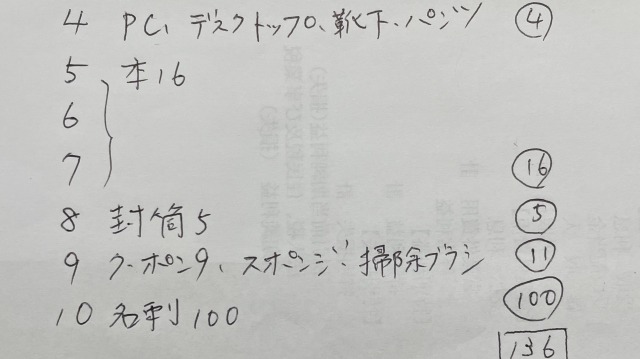 4 PC、デスクトップ、靴下、パンツ ④
5 本16
6
7 ⑯
8 封筒5 ⑤
9 クーポン9、スポンジ、掃除ブラシ ⑪
10 名刺100 100
136